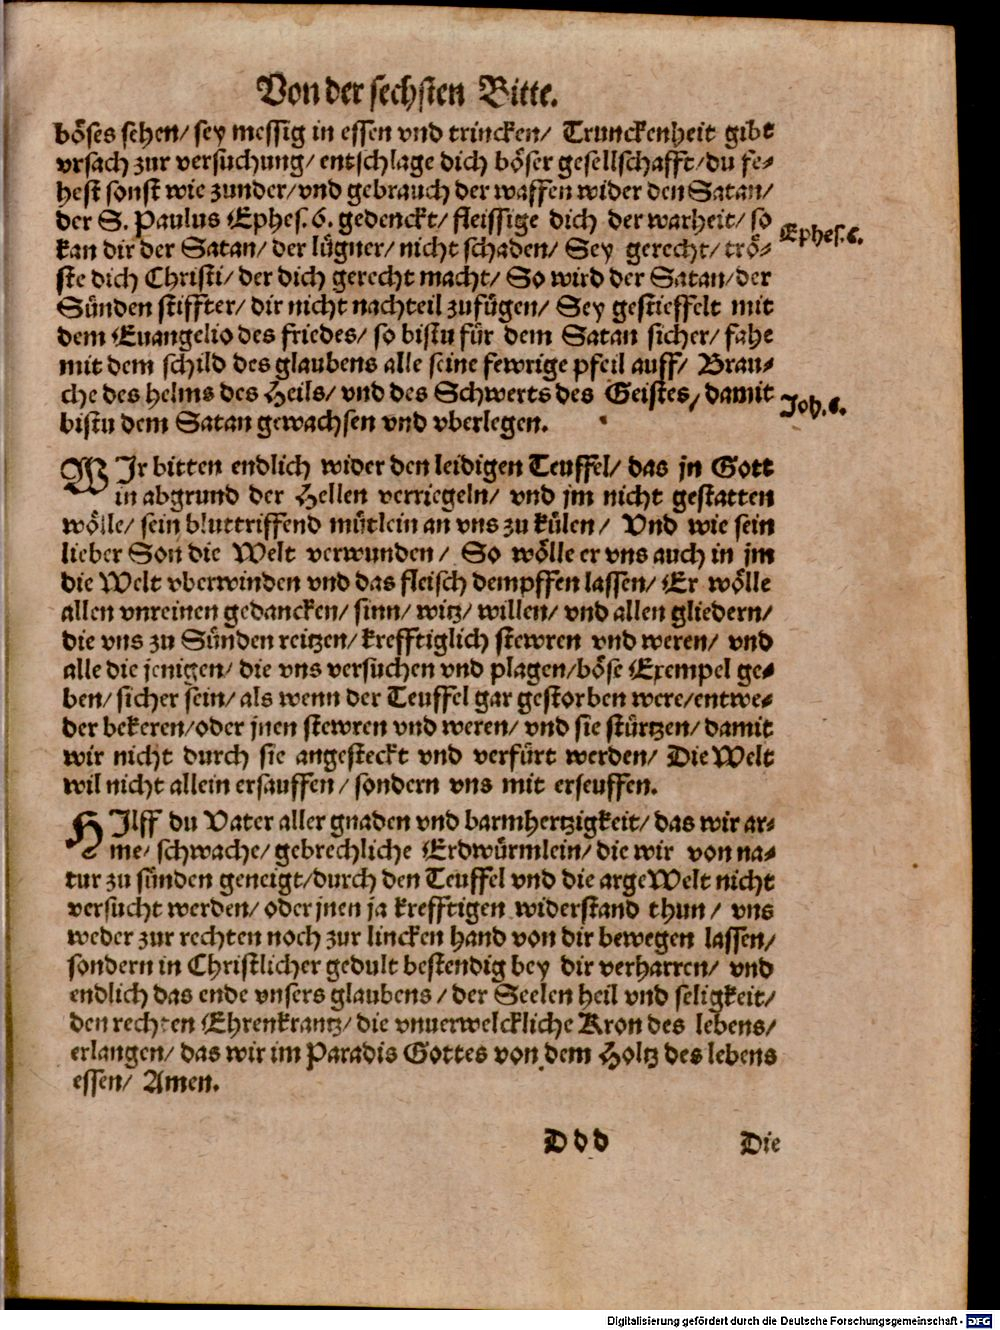 Von der sechsten Bitte.
böses sehen/ sey messig in essen vnd trincken/ Trunckenheit gibt
vrsach zur versuchung/ entschlage dich böser gesellschafft/ du fe-
hest sonst wie zunder/ vnd gebrauch der waffen wider den Satan/
der S. Paulus Ephes. 6. gedenckt/ fleissige dich der warheit/ so
Ephes. 6.
kan dir der Satan/ der lügner/ nicht schaden/ Sey gerecht/ trö-
ste dich Christi/ der dich gerecht macht/ So wird der Satan/ der
Sünden stiffter/ dir nicht nachteil zufügen/ Sey gestieffelt mit
dem Euangelio des friedes/ so bistu für dem Satan sicher/ fahe
mit dem schild des glaubens alle seine fewrige pfeil auff/ Brau-
che des helms des Heils/ vnd des Schwerts des Geistes/ damit
Joh. 6.
bistu dem Satan gewachsen vnd vberlegen.
WIr bitten endlich wider den leidigen Teuffel/ das jn Gott
in abgrund der Hellen verriegeln/ vnd jm nicht gestatten
wölle/ sein bluttriffend mütlein an vns zu külen/ Vnd wie sein
lieber Son die Welt verwunden/ So wölle er vns auch in jm
die Welt vberwinden vnd das fleisch dempffen lassen/ Er wölle
allen vnreinen gedancken/ sinn/ witz/ willen/ vnd allen gliedern/
die vns zu Sünden reitzen/ krefftiglich stewren vnd weren/ vnd
alle die jenigen/ die vns versuchen vnd plagen/ böse Exempel ge-
ben/ sicher sein/ als wenn der Teuffel gar gestorben were/ entwe-
der bekeren/ oder jnen stewren vnd weren/ vnd sie stürtzen/ damit
wir nicht durch sie angesteckt vnd verfürt werden/ Die Welt
wil nicht allein ersauffen/ sondern vns mit erseuffen.
HIlff du Vater aller gnaden vnd barmhertzigkeit/ das wir ar-
me/ schwache/ gebrechliche Erdwürmlein/ die wir von na-
tur zu sünden geneigt/ durch den Teuffel vnd die arge Welt nicht
versucht werden/ oder jnen ja krefftigen widerstand thun/ vns
weder zur rechten noch zur lincken hand von dir bewegen lassen/
sondern in Christlicher gedult bestendig bey dir verharren/ vnd
endlich das ende vnsers glaubens/ der Seelen heil vnd seligkeit/
den rechten Ehrenkrantz/ die vnuerwelckliche Kron des lebens/
erlangen/ das wir im Paradis Gottes von dem Holtz des lebens
essen/ Amen.
D d d
Die
Digitalisierung gefördert durch die Deutsche Forschungsgemeinschaft - DFG